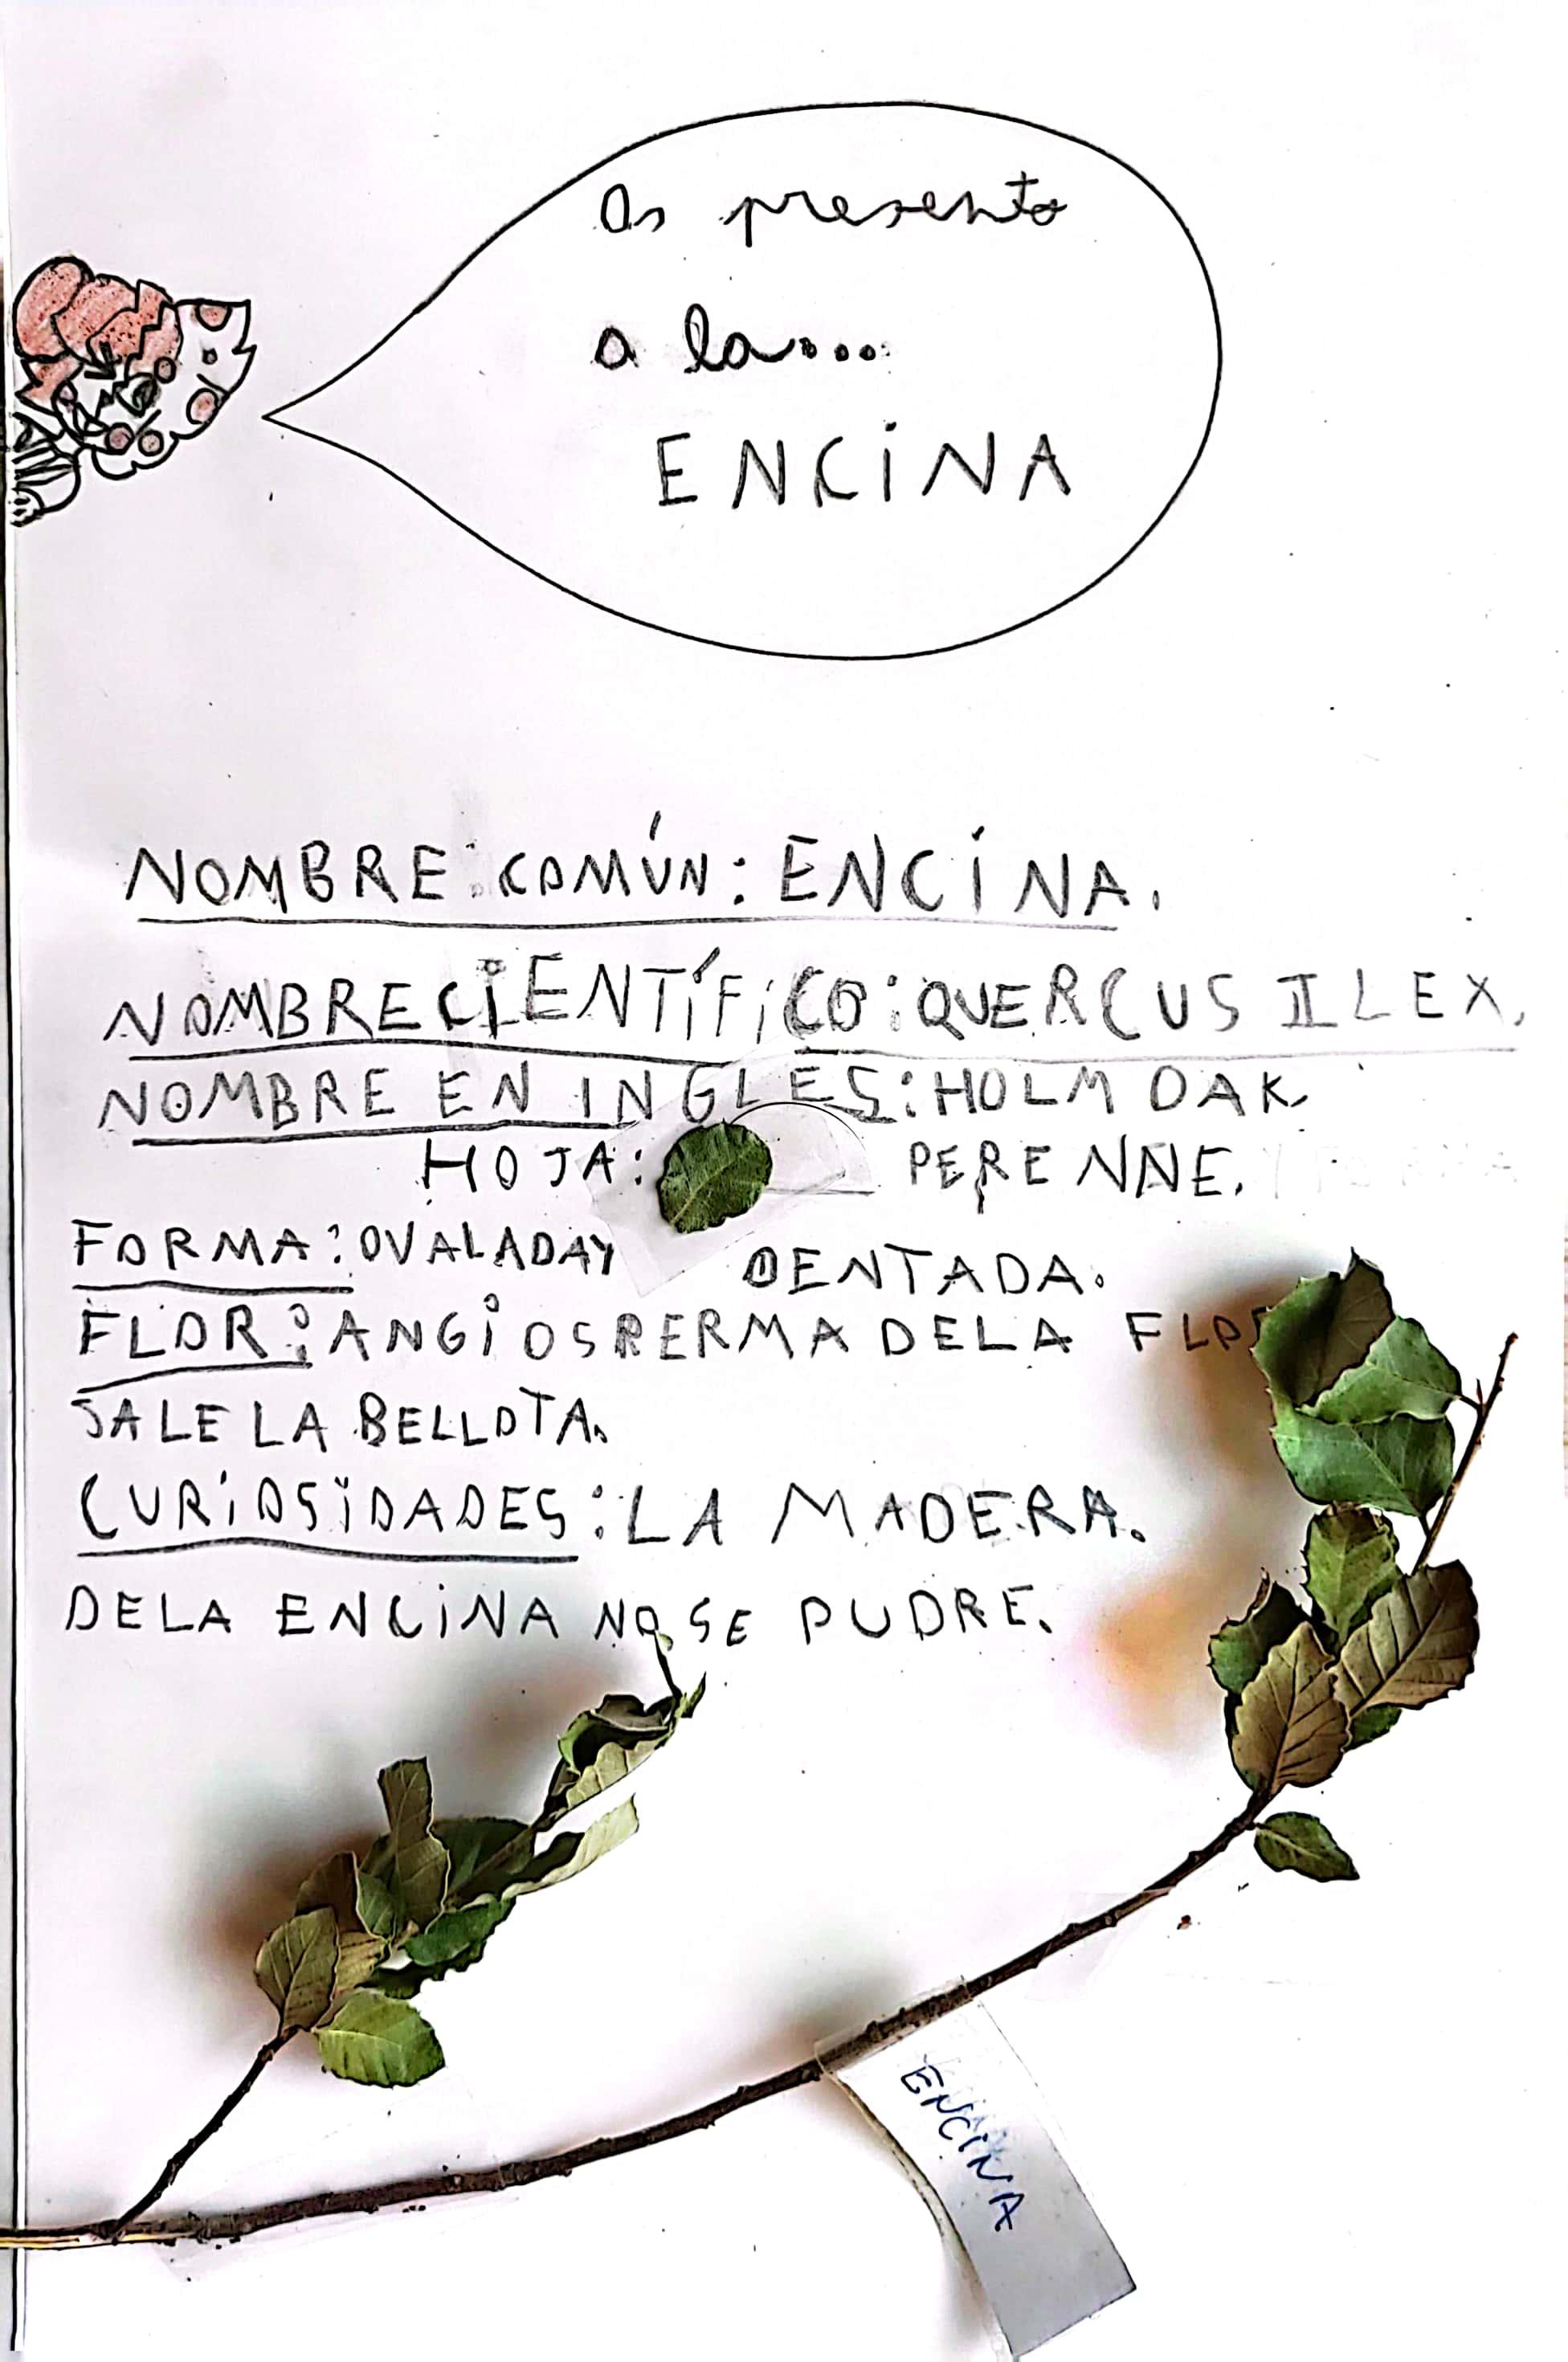 Os presento
a la...
ENCINA
NOMBRE COMÚN: ENCINA.
NOMBRE CIENTÍFICO: QUERCUS ILEX.
NOMBRE EN INGLES: HOLM OAK.
HOJA: PERENNE.
FORMA: OVALADA Y DENTADA.
FLOR: ANGIOSPERMA DE LA FLOR
SALE LA BELLOTA.
CURIOSIDADES: LA MADERA.
DE LA ENCINA NO SE PUDRE.
ENCINA